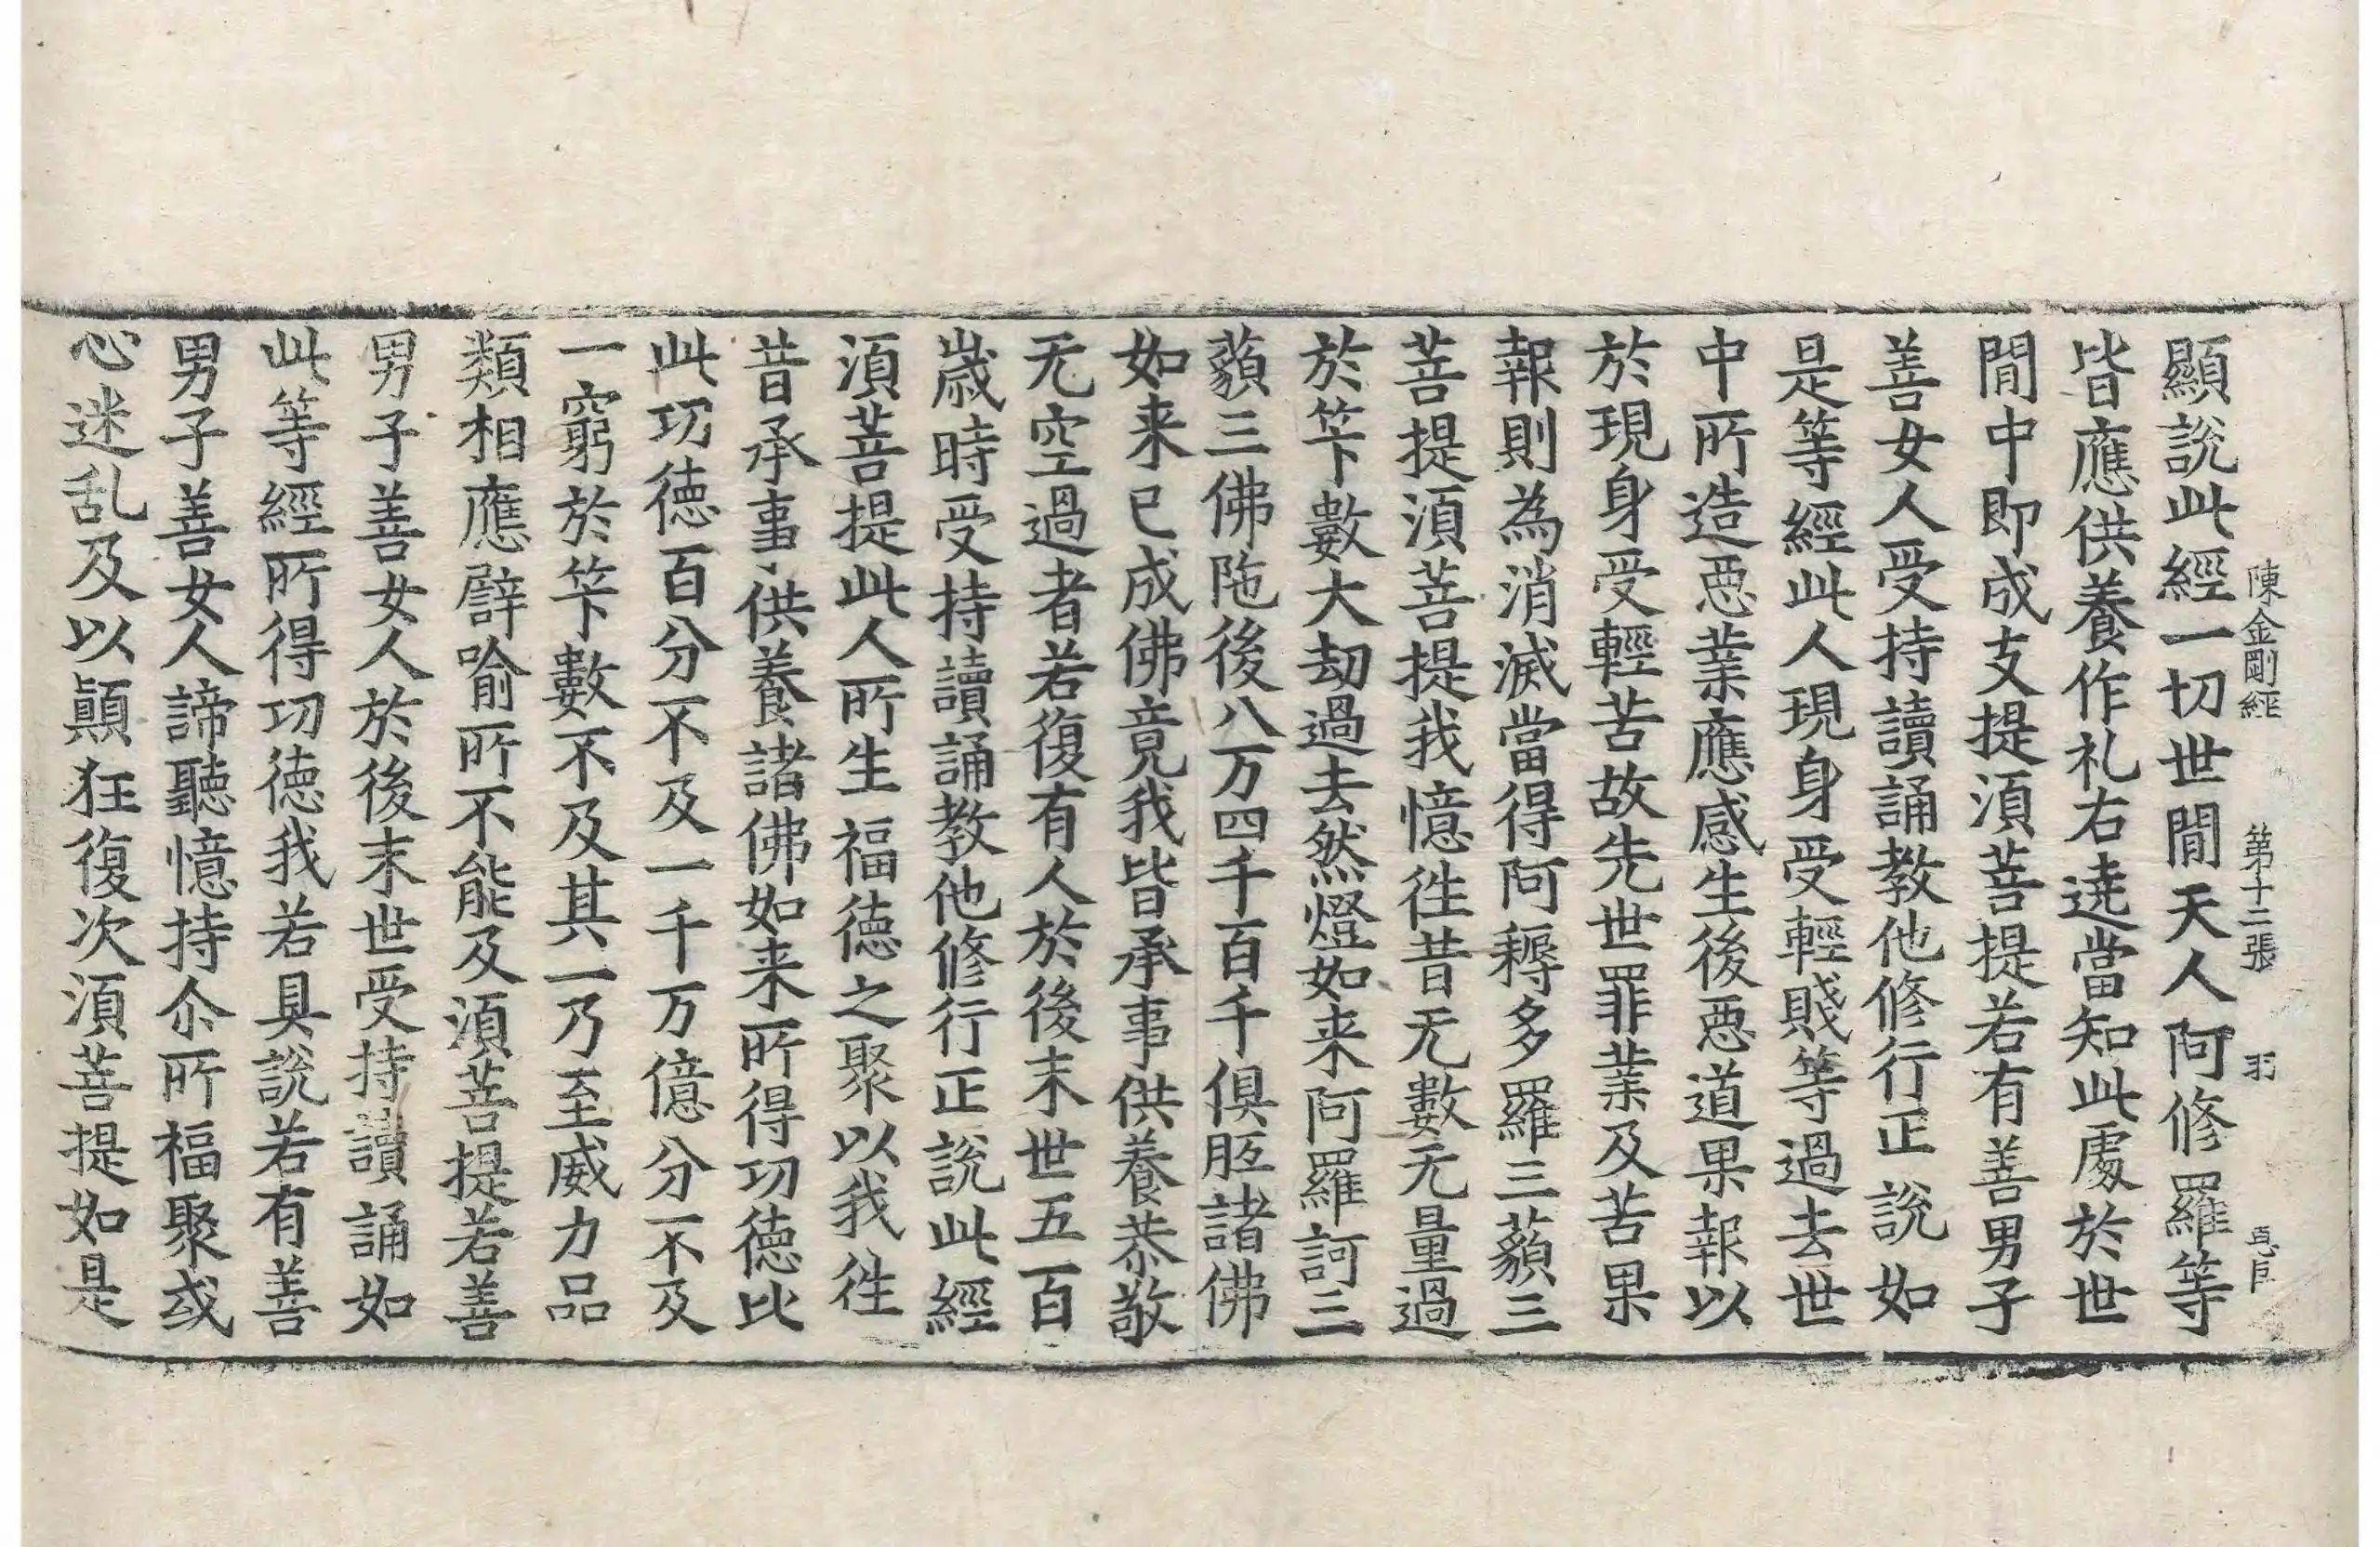 陳金剛經 第十二張 羽
顯說此經一切世間天人阿修羅等
皆應供養作礼右遶當知此處於世
間中即成支提湏菩提若有善男子
善女人受持讀誦教他修行正說如
是等經此人現身受輕賤等過去世
中所造惡業應感生後惡道果報以
於現身受輕苦故先世罪業及苦果
報則為消滅當得阿耨多羅三藐三
菩提湏菩提我憶往昔无數无量過
於笇數大劫過去然燈如来阿羅訶三
藐三佛陁後八万四千百千俱胝諸佛
如来已成佛竟我皆承事供養恭敬
无空過者若復有人於後末世五百
歲時受持讀誦教他修行正說此經
湏菩提此人所生福德之聚以我往
昔承事供養諸佛如来所得功德比
此功德百分不及一千万億分不及
一窮於笇數不及其一乃至威力品
類相應譬喻所不能及湏菩提若善
男子善女人於後末世受持讀誦如
此等經所得功德我若具說若有善
男子善女人諦聽憶持尒所福聚或
心迷乱及以顛狂復次湏菩提如是